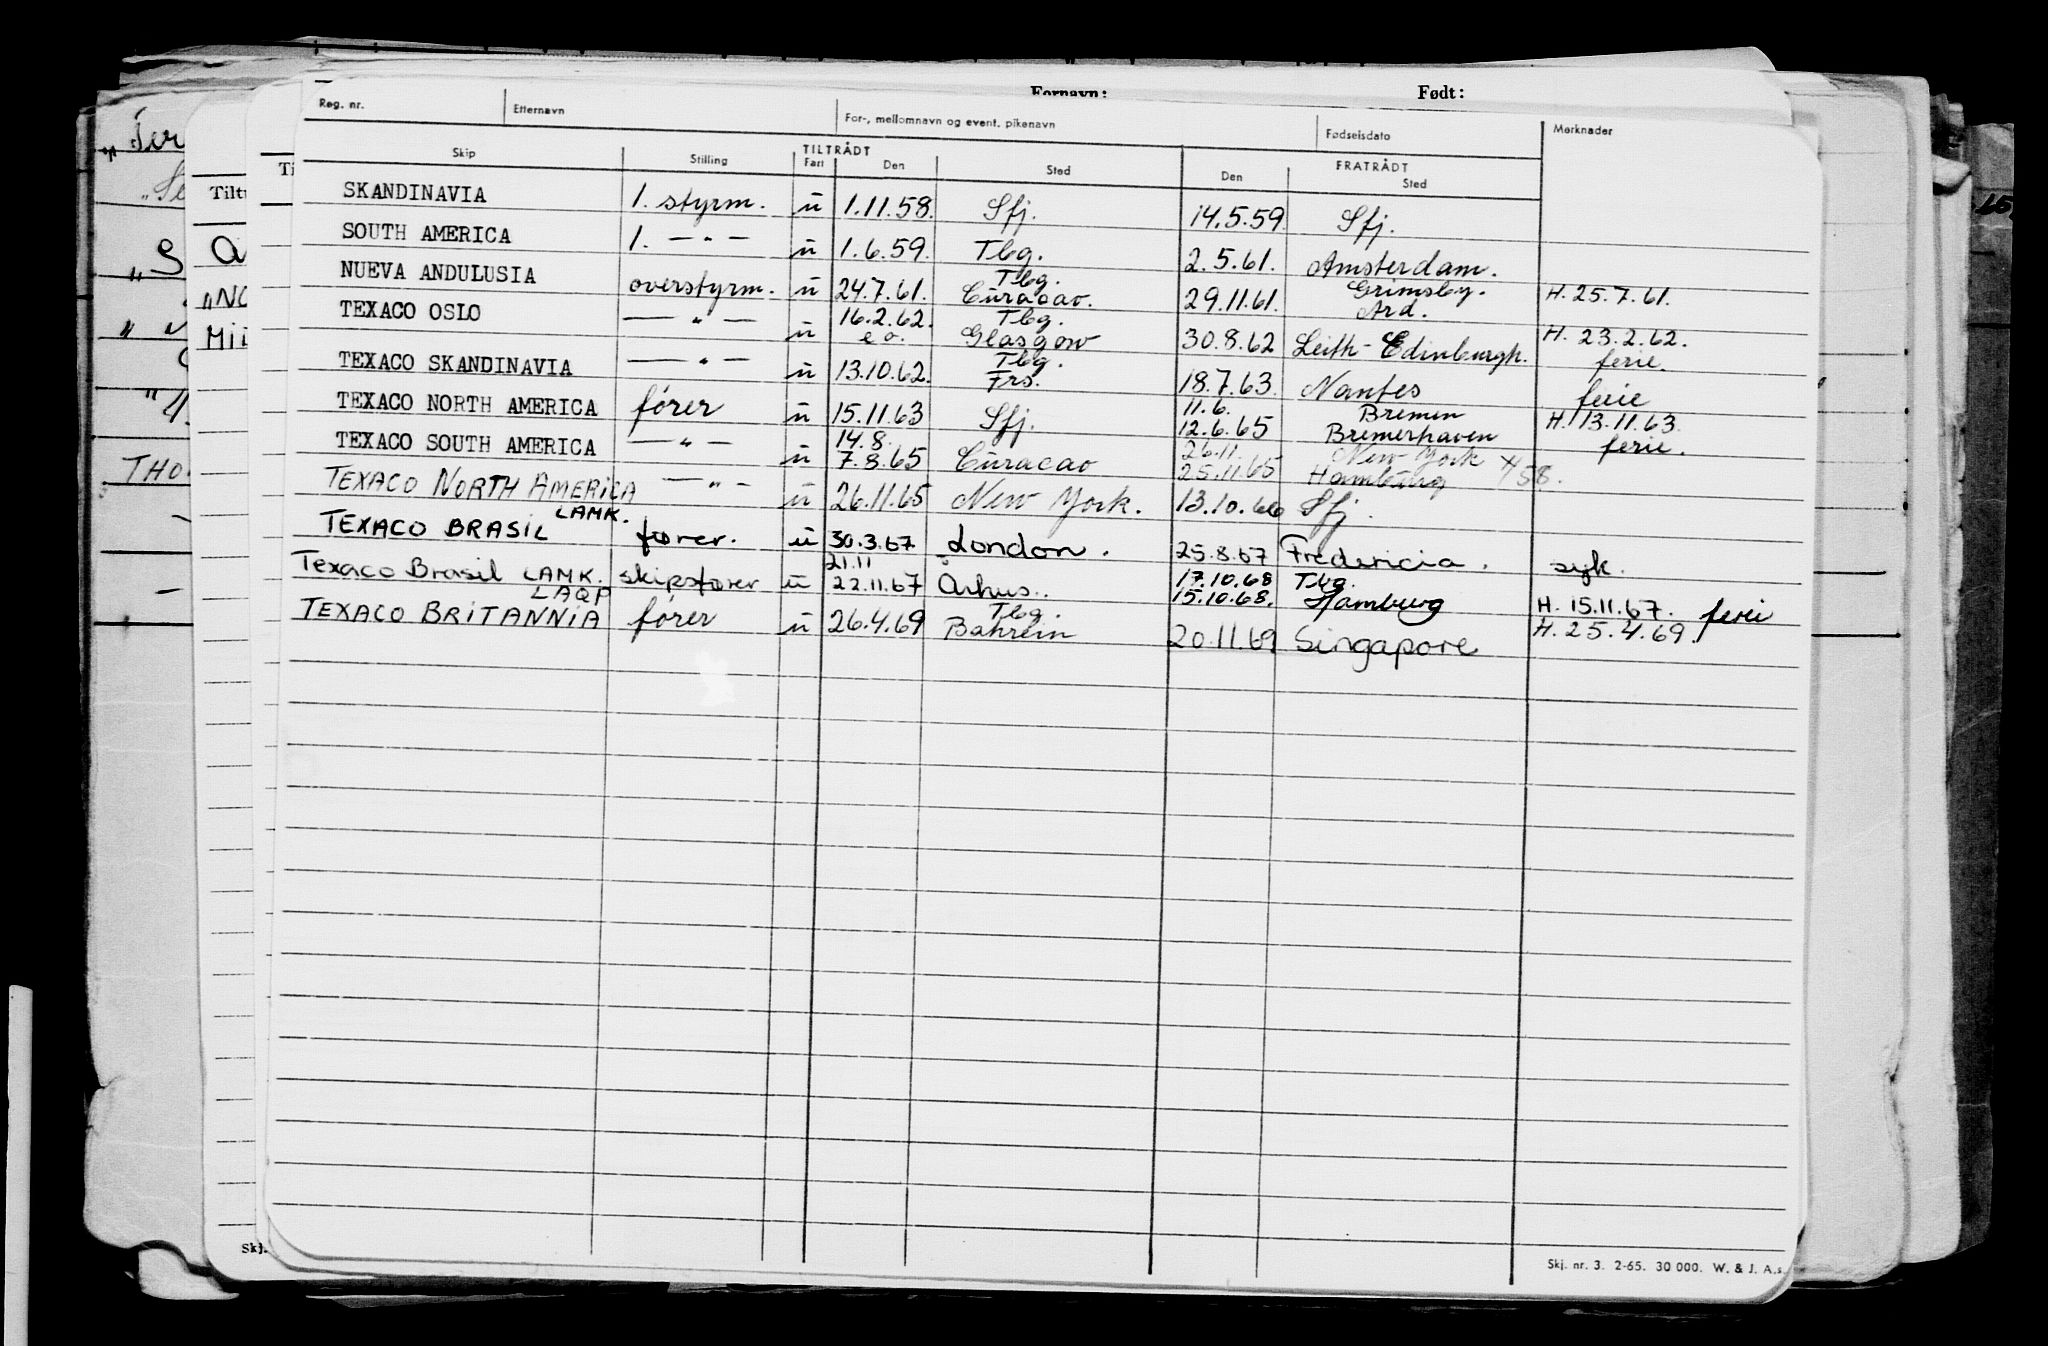 Fornavn: Født:
Reg. nr. Etternavn For-, mellomnavn og event. pikenavn Fødselsdato Merknader
Skip Stilling TILTRÅDT Fart Den Sted FRATRÅDT Den Sted
SKANDINAVIA 1. styrm. ū 1.11.58. Sfj. 14.5.59 Sfj.
SOUTH AMERICA 1. — " — ū 1.6.59. Tbg. 2.5.61. Amsterdam.
NUEVA ANDULUSIA overstyrm. ū 24.7.61. Tbg. Curacao. 29.11.61. Grimsby. Ard. H. 25.7.61.
TEXACO OSLO — " — ū 16.2.62. e o. Tbg. Glasgow 30.8.62 Leith - Edinburgh. H. 23.2.62. ferie.
TEXACO SKANDINAVIA — " — ū 13.10.62. Tbg. Frs. 18.7.63. Nantes ferie
TEXACO NORTH AMERICA fører ū 15.11.63 Sfj. 11.6. 12.6.65 Bremen Bremerhaven H. 13.11.63. ferie.
TEXACO SOUTH AMERICA — " — ū 14.8. 7.8.65 Curacao 26.11. 25.11.65 New York Hamburg 4/58.
TEXACO NORTH AMERICA — " — ū 26.11.65 New York. 13.10.66 Sfj.
TEXACO BRASIL LAMK. fører. ū 30.3.67 London. 25.8.67 Fredericia. syk.
Texaco Brasil LAMK. skipsfører ū 21.11 22.11.67 Århus.. 17.10.68 15.10.68. Tbg. Hamburg H. 15.11.67. ferie
TEXACO BRITANNIA LAQP fører ū 26.4.69 Tbg. Bahrein 20.11.69 Singapore H. 25.4.69.
Skj. nr. 3. 2-65. 30 000. W. & J. A.s.
Skj.
THO